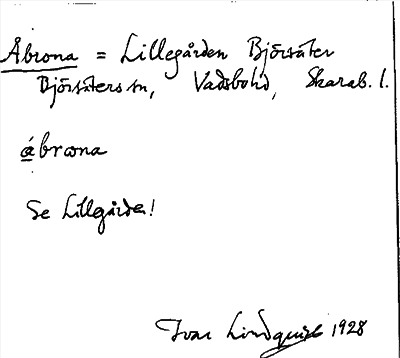 Åbrona = Lillegården Björsäter
Björsäters sn, Vadsbo hd, Skarab. l.
åbrωna
Se Lillgården!
Ivar Lindquist 1928